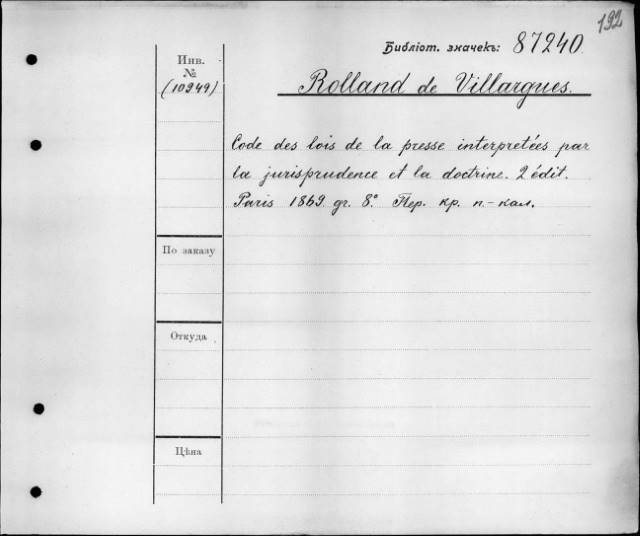 192
Библіот. значекъ: 87240
Инв.
№
(10949)
Rolland de Villargues.
Code des lois de la presse interpretées par
la jurisprudence et la doctrine. 2 édit.
Paris 1869 gr. 8° Пер. кр. п.-кал.
По заказу
Откуда
Цѣна